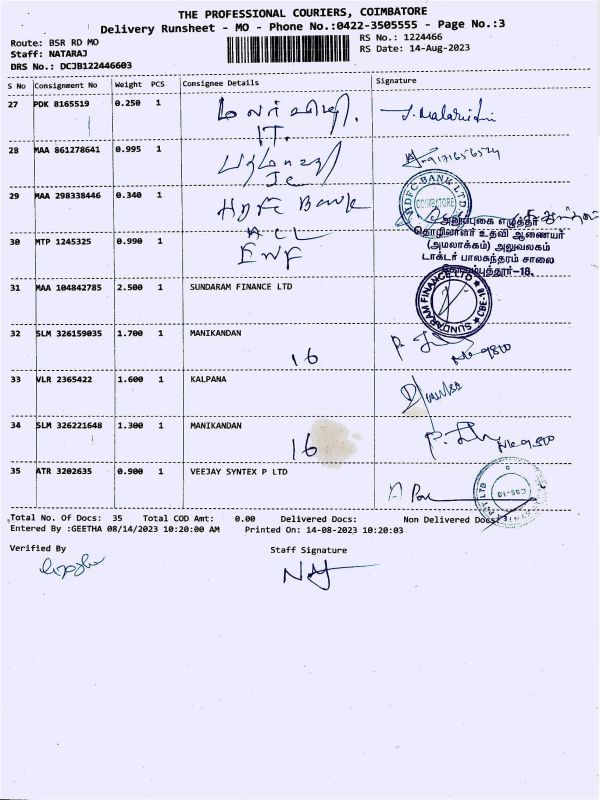 THE PROFESSIONAL COURIERS, COIMBATORE
Delivery Runsheet - MO - Phone No.:0422-3505555 - Page No.:3
Route: BSR RD MO
RS No.: 1224466
Staff: NATARAJ
RS Date: 14-Aug-2023
DRS No.: DCJB122446603
S No Consignment No Weight PCS Consignee Details Signature
27 PDK 8165519 0.250 1
IT.
28 MAA 861278641 0.995 1
29 MAA 298338446 0.340 1 HDFC Bank
HDFC BANK LTD
COIMBATORE
அனுப்புகை எழுத்தர்
தொழிலாளர் உதவி ஆணையர்
(அமலாக்கம்) அலுவலகம்
டாக்டர் பாலசுந்தரம் சாலை
கோயமுத்தூர்-18.
30 MTP 1245325 0.990 1 ACL
ENF
31 MAA 104842785 2.500 1 SUNDARAM FINANCE LTD
SUNDARAM FINANCE LTD CBE-18
32 SLM 326159035 1.700 1 MANIKANDAN
16
33 VLR 2365422 1.600 1 KALPANA
34 SLM 326221648 1.300 1 MANIKANDAN
16
35 ATR 3202635 0.900 1 VEEJAY SYNTEX P LTD
Total No. Of Docs: 35 Total COD Amt: 0.00 Delivered Docs: Non Delivered Docs:
Entered By :GEETHA 08/14/2023 10:20:00 AM Printed On: 14-08-2023 10:20:03
Verified By Staff Signature